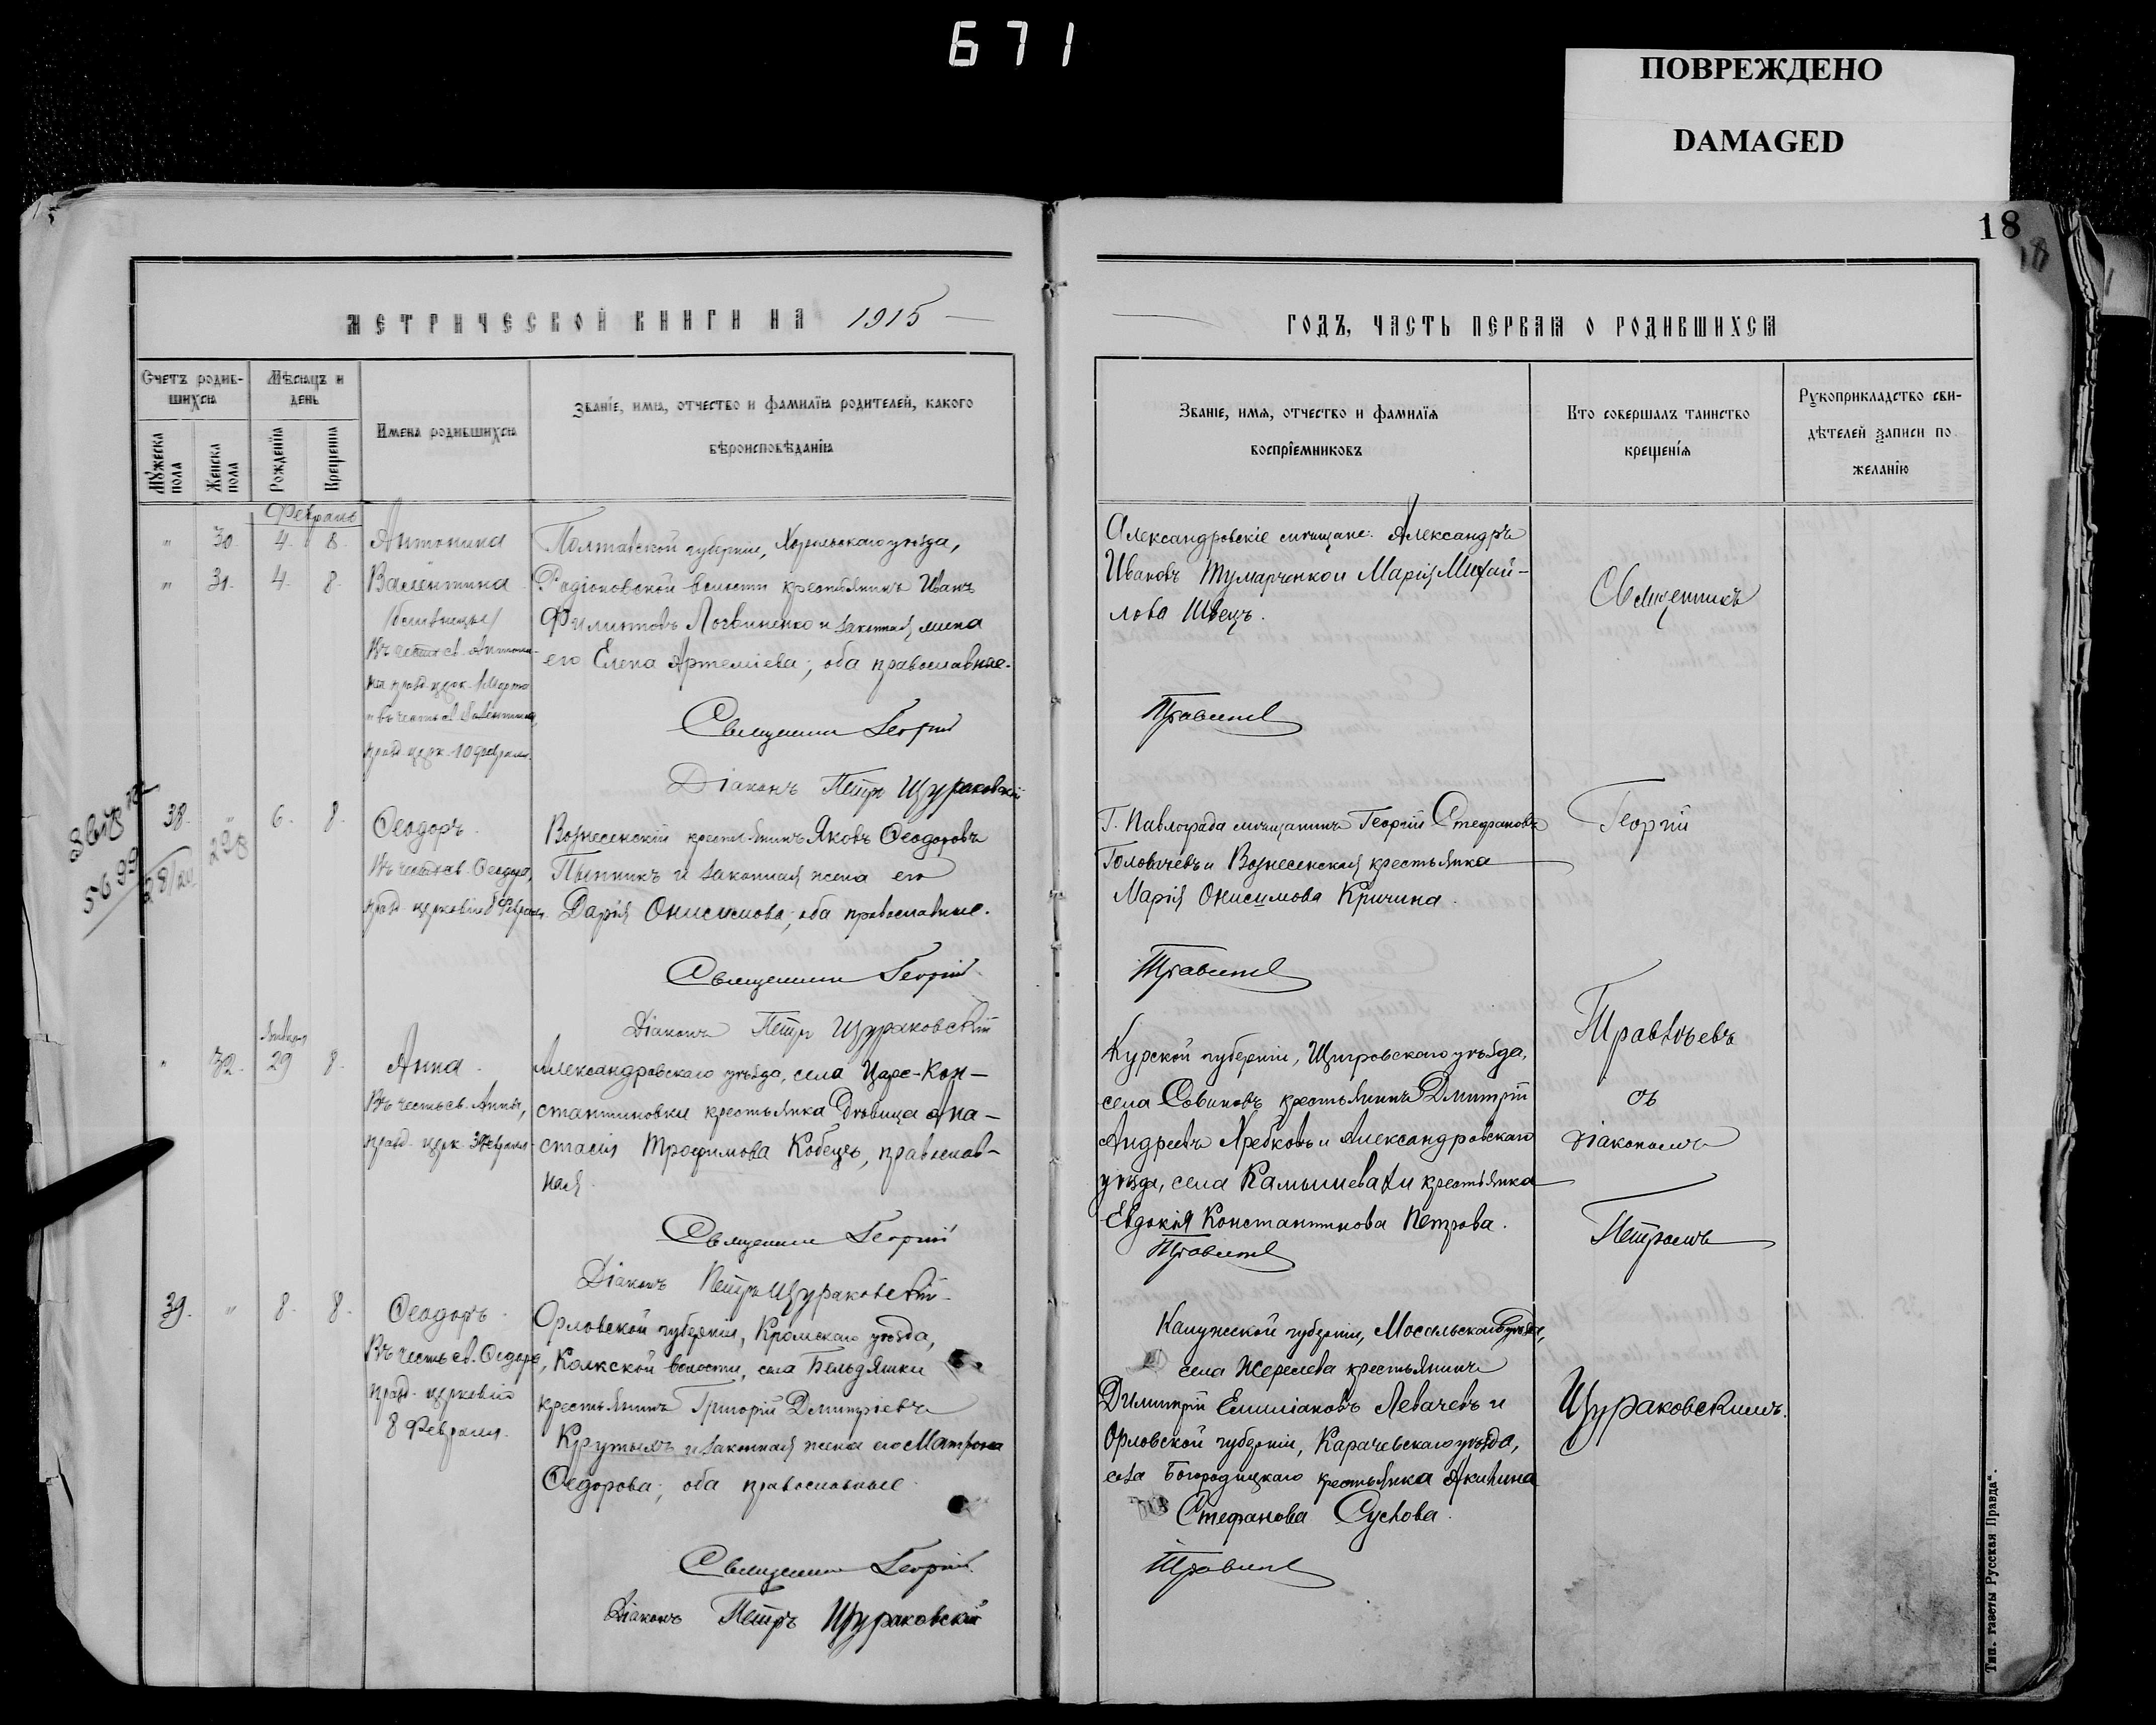 671
ПОВРЕЖДЕНО
DAMAGED
18
18
МЕТРИЧЕСКОЙ КНИГИ НА 1915
ГОДЪ, ЧАСТЬ ПЕРВАЯ О РОДИВШИХСЯ
Счетъ родив-
шихся
Мѣсяцъ и
день
Мужеска
пола
Женска
пола
Рожденія
Крещенія
Имена родившихся
Званіе, имя, отчество и фамилія родителей, какого
вѣроисповѣданія
Званіе, имя, отчество и фамилія
воспріемниковъ
Кто совершалъ таинство
крещенія
Рукоприкладство сви-
дѣтелей записи по
желанію
Февраль
" 30. 4. 8. Антонина
" 31. 4. 8. Валентина
/близнецы/
Въ честь св. Антони-
ны празд. церк. 1 Марта
и въ честь св. Валентины,
празд. церк. 10 февраля.
Полтавской губерніи, Хорольскаго уѣзда,
Родіоновской волости крестьянинъ Иванъ
Филиповъ Логвиненко и законная жена
его Елена Артеміева; оба православные.
Священникъ Георгій
Діаконъ Петръ Щураковскій
Александровскіе мѣщане: Александръ
Ивановъ Тумарченко и Марія Михай-
лова Швецъ.
Травлевъ
Священникъ
38. " 6. 8. Ѳеодоръ.
Въ честь св. Ѳеодора,
празд. церковію 8 Февраля.
Вознесенскій крестьянинъ Яковъ Ѳеодоровъ
Пынникъ и законная жена его
Дарія Онисимова; оба православные.
Священникъ Георгій
Діаконъ Петръ Щураковскій
Г. Павлограда мѣщанинъ Георгій Стефановъ
Головачевъ и Вознесенская крестьянка
Марія Онисимова Кричина.
Георгій
Января
" 32. 29 8. Анна.
Въ честь св. Анны,
празд. церк. 3 Февраля
Александровскаго уѣзда, села Царе-Кон-
стантиновки крестьянка дѣвица Ана-
стасія Трофимова Кобецъ, православ-
ная.
Священникъ Георгій
Діаконъ Петръ Щураковскій.
Курской губерніи, Щигровскаго уѣзда,
села Савиновъ крестьянинъ Дмитрій
Андреевъ Хребковъ и Александровскаго
уѣзда, села Камышевахи крестьянка
Евдокія Константинова Петрова.
съ
діакономъ
Петромъ
39. " 8. 8. Ѳеодоръ.
Въ честь св. Ѳеодора,
празд. церковію
8 Февраля.
Орловской губерніи, Кромскаго уѣзда,
волости, села Бельдяшки
крестьянинъ Григорій Дмитріевъ
Крутымъ и законная жена его Матрона
Ѳедорова; оба православные.
Священникъ Георгій
Діаконъ Петръ Щураковскій
Калужской губерніи, Мосальскаго уѣзда,
села Жерелева крестьянинъ
Димитрій Емиліановъ Левачевъ и
Орловской губерніи, Карачевскаго уѣзда,
села Богородицкаго крестьянка Акилина
Стефанова Суслова.
Щураковскимъ.
Тип. газеты Русская Правда".